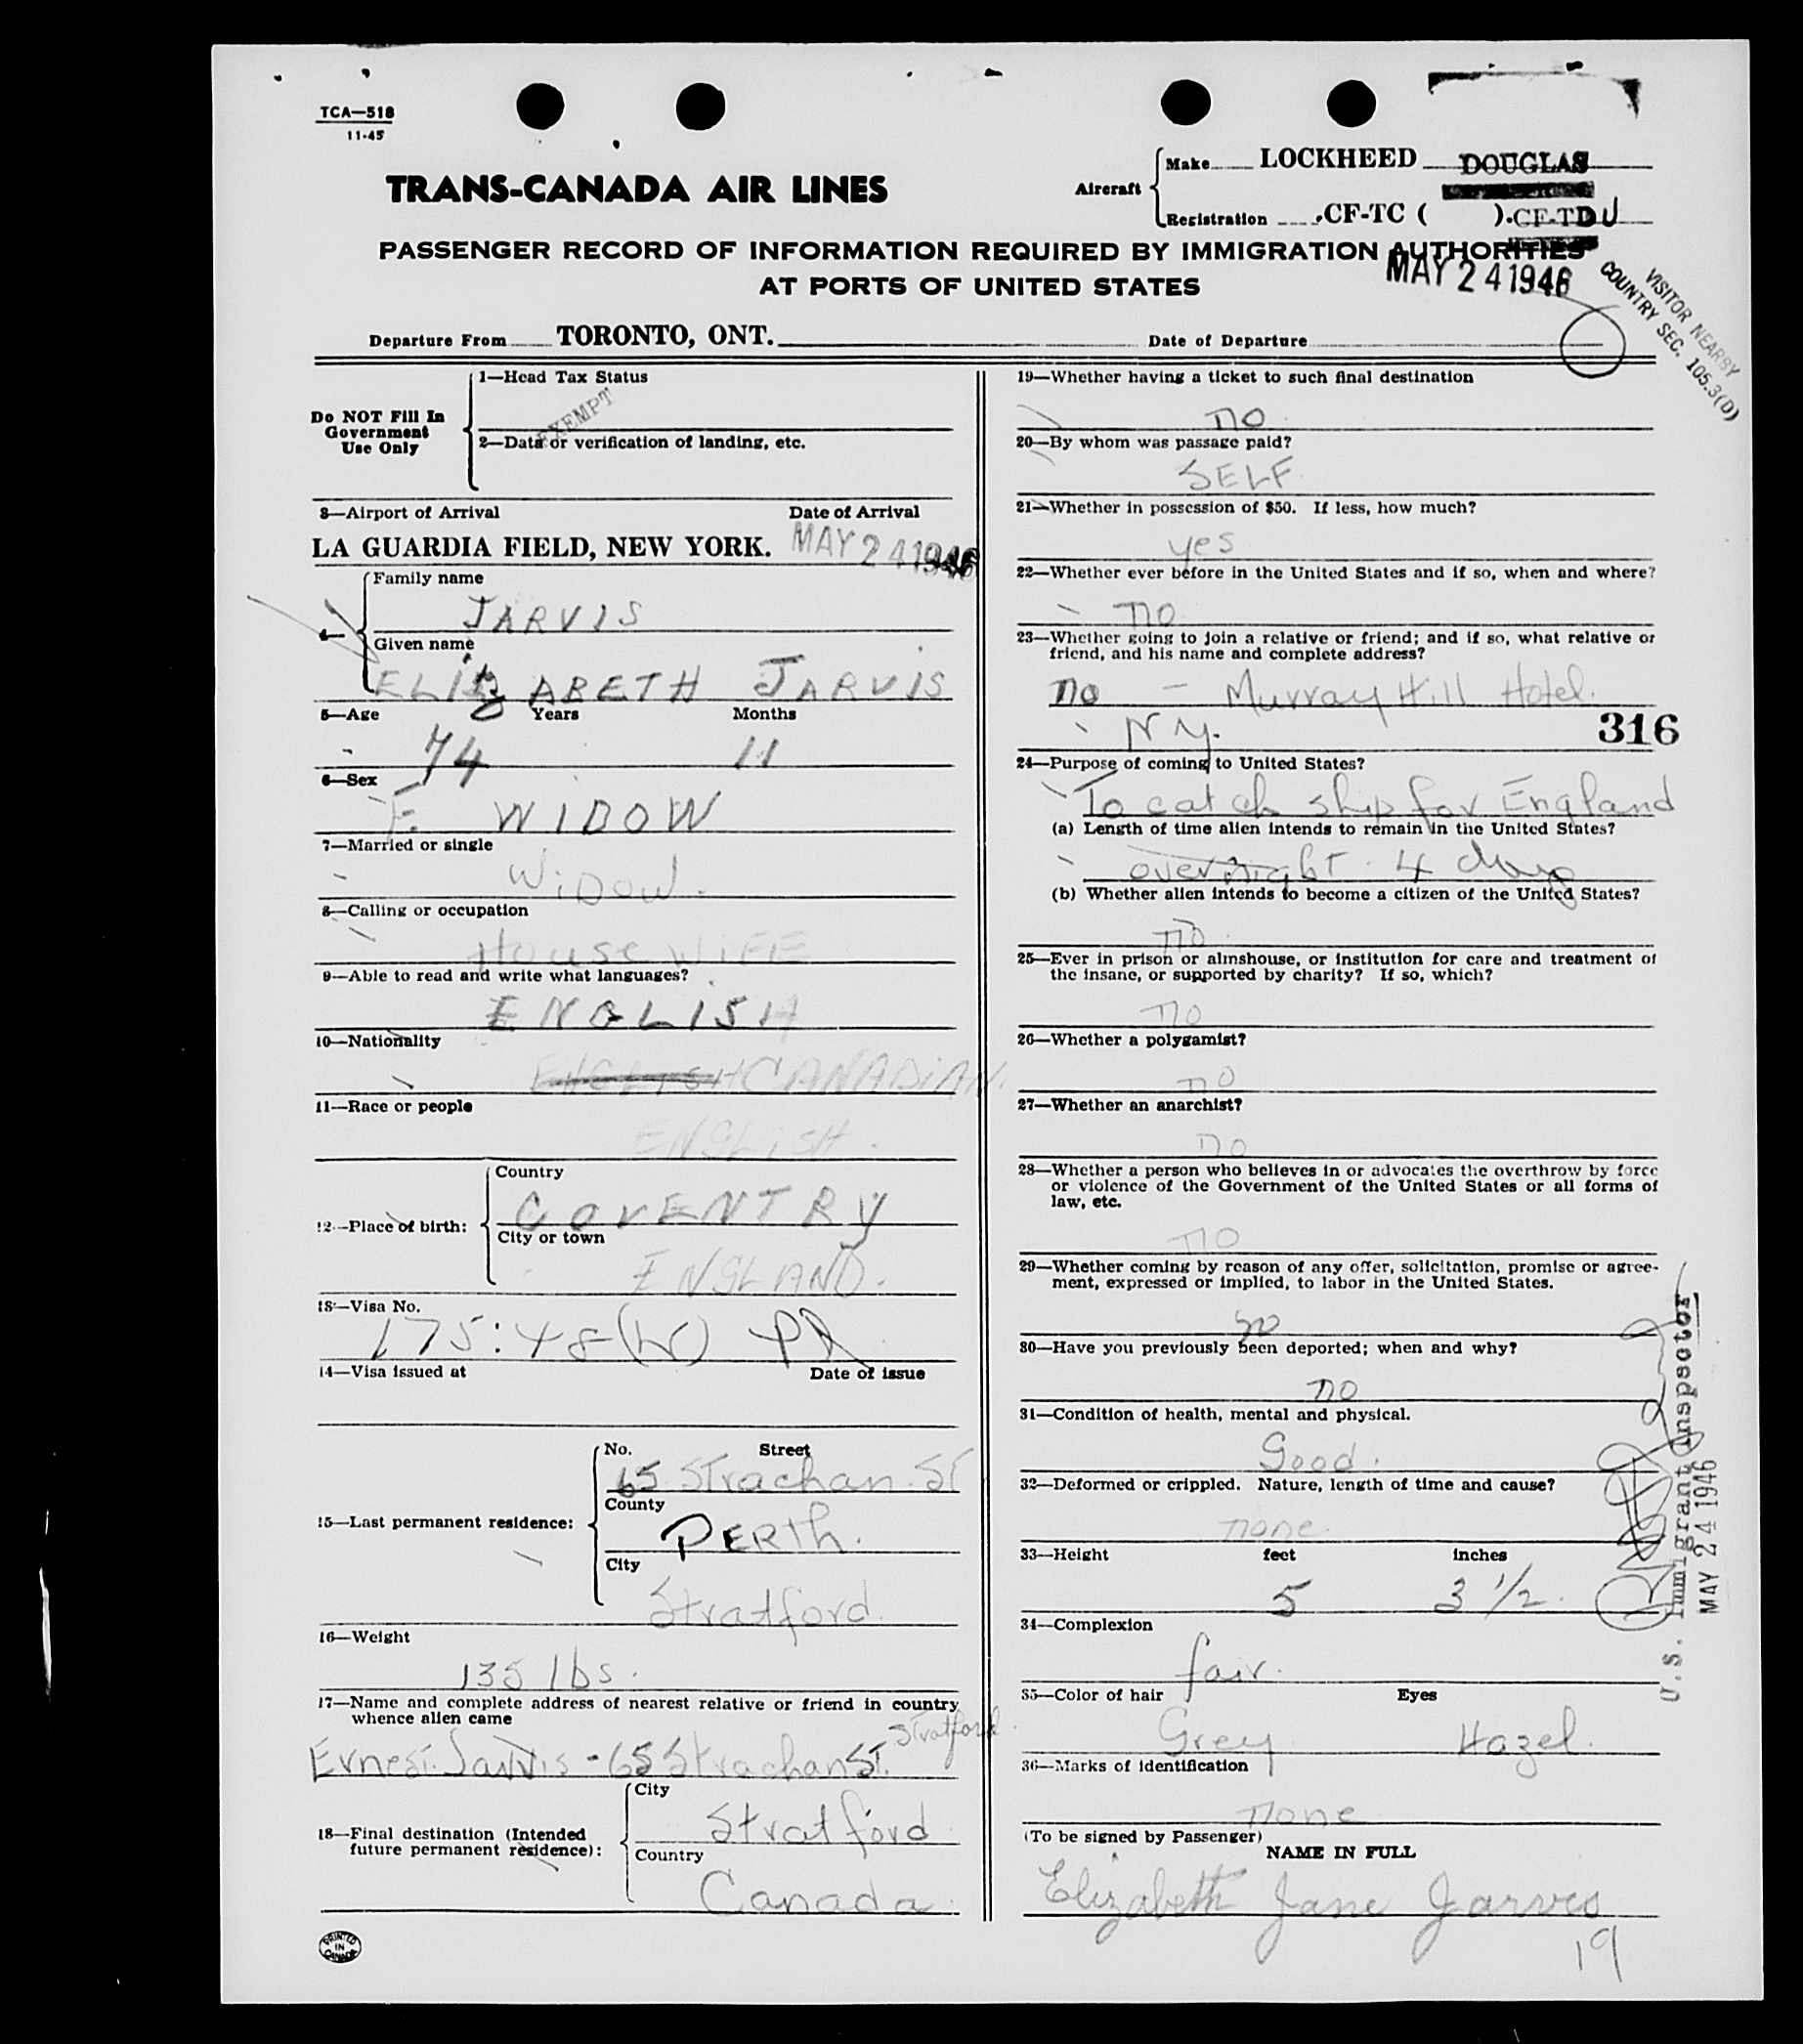 TCA—518
11-45
TRANS-CANADA AIR LINES
Aircraft
Make LOCKHEED DOUGLAS
Registration CF-TC ( ). CF-TDU
PASSENGER RECORD OF INFORMATION REQUIRED BY IMMIGRATION AUTHORITIES
AT PORTS OF UNITED STATES
MAY 24 1946
VISITOR NEARBY
COUNTRY SEC. 105.3(D)
Departure From TORONTO, ONT. Date of Departure
Do NOT Fill In
Government
Use Only
1—Head Tax Status
EXEMPT
2—Data or verification of landing, etc.
3—Airport of Arrival Date of Arrival
LA GUARDIA FIELD, NEW YORK. MAY 24 1946
4—
Family name
JARVIS
Given name
ELIZABETH JARVIS
5—Age Years Months
74 11
6—Sex
F. WIDOW
7—Married or single
WIDOW.
8—Calling or occupation
House WIFE
9—Able to read and write what languages?
ENGLISH
10—Nationality
ENGLISH CANADIAN.
11—Race or people
ENGLISH.
12—Place of birth:
Country
COVENTRY
City or town
ENGLAND.
13—Visa No.
175:48(W)
14—Visa issued at Date of issue
15—Last permanent residence:
No. Street
65 Strachan. ST
County
PERTH.
City
Stratford.
16—Weight
135 lbs.
17—Name and complete address of nearest relative or friend in country
whence alien came
Stratford.
Ernest. Jarvis - 65 Strachan ST.
18—Final destination (Intended
future permanent residence):
City
Stratford
Country
Canada.
PRINTED
IN
CANADA
19—Whether having a ticket to such final destination
no.
20—By whom was passage paid?
SELF.
21—Whether in possession of $50. If less, how much?
yes
22—Whether ever before in the United States and if so, when and where?
no.
23—Whether going to join a relative or friend; and if so, what relative or
friend, and his name and complete address?
no — Murray Hill Hotel.
316
N Y.
24—Purpose of coming to United States?
To catch ship for England
(a) Length of time alien intends to remain in the United States?
overnight. 4 days
(b) Whether alien intends to become a citizen of the United States?
no.
25—Ever in prison or almshouse, or institution for care and treatment of
the insane, or supported by charity? If so, which?
no
26—Whether a polygamist?
no
27—Whether an anarchist?
no
28—Whether a person who believes in or advocates the overthrow by force
or violence of the Government of the United States or all forms of
law, etc.
no
29—Whether coming by reason of any offer, solicitation, promise or agree-
ment, expressed or implied, to labor in the United States.
no
30—Have you previously been deported; when and why?
no
31—Condition of health, mental and physical.
Good.
32—Deformed or crippled. Nature, length of time and cause?
none.
33—Height feet inches
5 3 1/2.
34—Complexion
fair.
35—Color of hair Eyes
Grey Hazel.
36—Marks of identification
none
(To be signed by Passenger)
NAME IN FULL
Elizabeth Jane Jarvis
19
U.S. Immigrant Inspector
MAY 24 1946